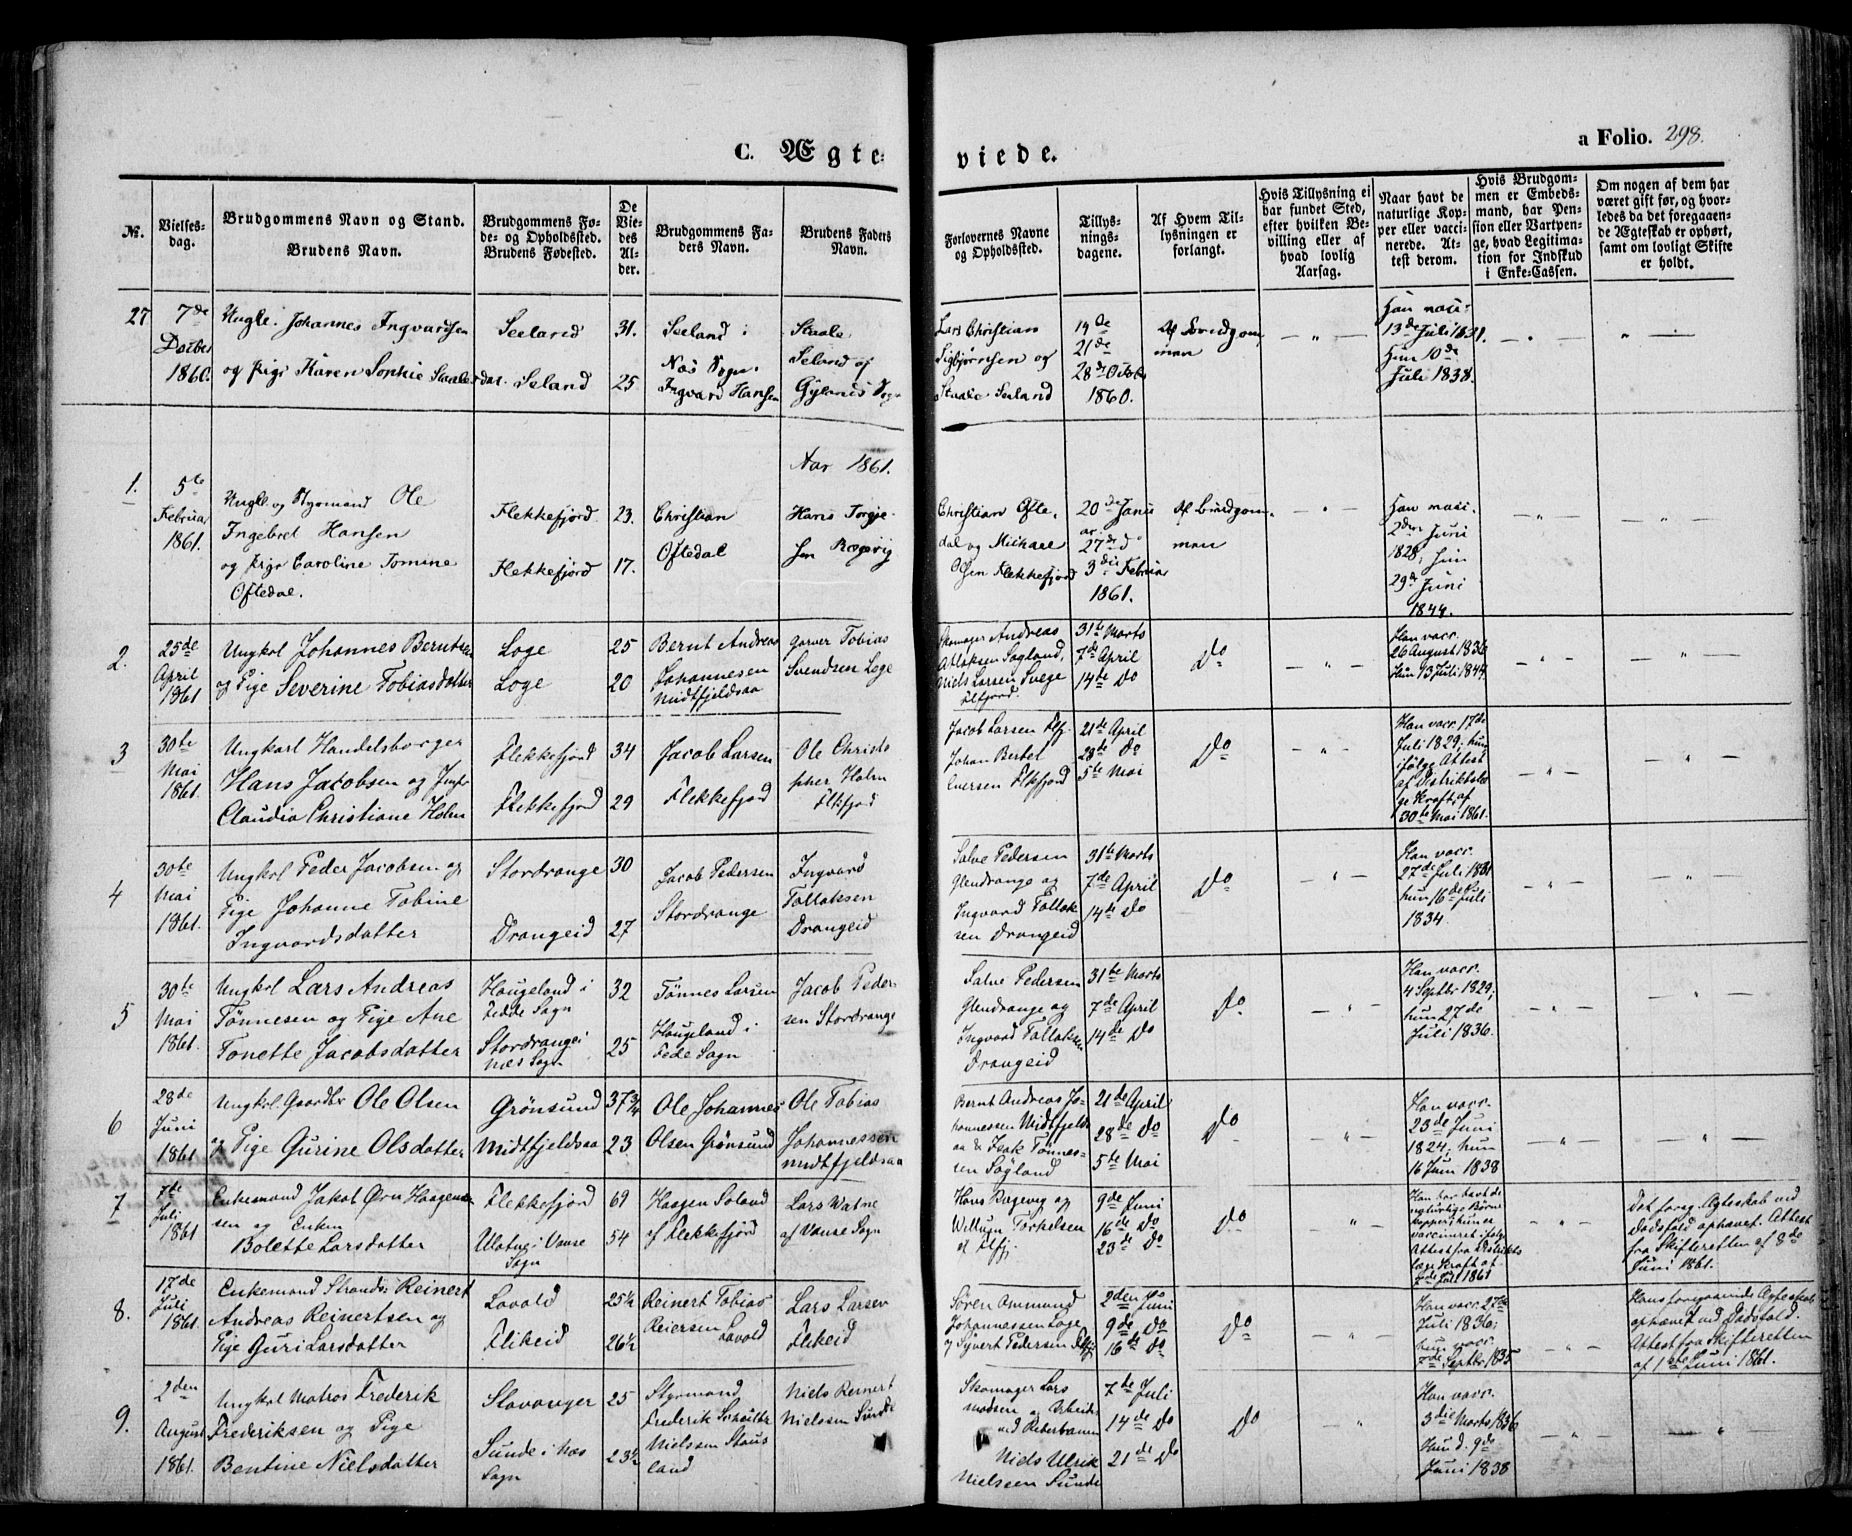 C. Ægte-
viede.
a Folio. 298.
№.
Vielses-
dag.
Brudgommens Navn og Stand.
Brudens Navn.
Brudgommens Fø-
de- og Opholdssted.
Brudens Fødested.
De
Vie-
des
Al-
der.
Brudgommens Fa-
ders Navn.
Brudens Faders
Navn.
Forlovernes Navne
og Opholdssted.
Tillys-
nings-
dagene.
Af Hvem Til-
lysningen er
forlangt.
Hvis Tillysning ei
har fundet Sted,
efter hvilken Be-
villing eller af
hvad lovlig
Aarsag.
Naar havt de
naturlige Kop-
per eller vacci-
nerede. At-
test derom.
Hvis Brudgom-
men er Embeds-
mand, har Pen-
sion eller Vartpen-
ge, hvad Legitima-
tion for Indskud
i Enke-Cassen.
Om nogen af dem har
været gift før, og hvor-
ledes da det foregaaen-
de Ægteskab er ophørt,
samt om lovligt Skifte
er holdt.
27
7de
Decber
1860.
Ungk. Johannes Ingvardsen
og Pige Karen Sophie Staalesdat.
Seeland
Seland
31.
25
Seeland i
Næs Sogn.
Ingvard Hansen
Staale
Seland af
Gylands Sogn
Lars Christian
Sigbjørnsen og
Staale Seeland
14de
21de
28de Octob.
1860.
Af Brudgom-
men
— " —
Han vacc.
13de Juli 1831.
Hun 10de
Juli 1838.
— " —
— " —
Aar 1861.
1.
5te
Februar
1861.
Ungk. og Styrmand Ole
Ingebret Hansen
og Pige Caroline Tomine
Oftedal.
Flekkefjord
Flekkefjord
23.
17.
Christian
Oftedal
Hans Torgje-
sen Regevig
Christian Ofte-
dal og Michael
Olsen Flekkefjord
20de Janu-
ar
27de do
3die Februar
1861.
Af Brudgom-
men
— " —
Han vacc.
2den Juni
1828, Hun
29de Juni
1844.
— " —
— " —
2.
25de
April
1861
Ungkrl Johannes Berntsen
og Pige Severine Tobiasdatter
Loge
Loge
25
20
Bernt Andreas
Johannesen
Midtfjeldsaa
Garver Tobias
Svendsen Loge
Skomager Andreas
Atlaksen Søgland,
Niels Larsen Svege
Flfjord.
31te Marts
7de April
14de Do
Do
— " —
Han vacc.
26 August 1836
Hun 13 Juli 1844
— " —
— " —
3
30te
Mai
1861.
Ungkarl Handelsborger
Hans Jacobsen og Jomfr
Claudia Christiane Holm
Flekkefjord
Flekkefjord
34
29
Jacob Larsen
Flekkefjord
Ole Christo
pher Holm
Flkfjord
Jacob Larsen Flfj.
Johan Bertel
Eversen Flkfjord
21de April
28de Do
5te Mai
Do
— " —
Han vacc. 17de
Juli 1829; hun
ifølge Attest
af Distriktslæ
ge Kraft, af
30te Mai 1861.
— " —
— " —
4
30te
Mai
1861.
Ungkrl Peder Jacobsen og
Pige Johanne Tobine
Ingvardsdatter
Stordrange
Drangeid
30
27
Jacob Pedersen
Stordrange
Ingvard
Tollaksen
Drangeid
Salve Pedersen
Glendrange og
Ingvard Tollak
sen Drangeid
31te Marts
7de April
14de Do
Do
— " —
Han vacc.
27de Juli 1831
hun 16de Juli
1834
— " —
— " —
5
30te
Mai
1861.
Ungkrl Lars Andreas
Tønnesen og Pige Ane
Tonette Jacobsdatter
Haugeland i
Fedde Sogn
Stordrange i
Næs Sogn
32
25
Tønnes Larsen
Haugeland i
Fede Sogn
Jacob Peder-
sen Stordrange
Salve Pedersen
Glendrange og
Ingvard Tollaksen
Drangeid
31te Marts
7de April
14de Do
Do
"
Han vacc.
4 Septbr 1829;
hun 27de
Juli 1836.
— " —
"
6
28de
Juni
1861
Ungkrl. Gaardbr Ole Olsen
og Pige Gurine Olsdatter
Grønsund
Midtfjeldsaa
37¾
23
Ole Johannes
Olsen Grønsund
Ole Tobias
Johannessen
Midtfjeldsaa
Bernt Andreas Jo-
hannessen Midtfjelds
aa & Isak Tønnes-
sen Søgland
21de April
28de Do
5te Mai
Do
"
Han vacc.
23de Juni
1824; hun
16 Juni 1838
— " —
— " —
7
7de
Juli
1861
Enkemand Jakob Ørn Haagen
sen og Enken
Bolette Larsdatter
Flekkefjord
Ulatny i Vanse
Sogn
69
54
Haagen Soland
af Flekkefjord
Lars Watne
af Vanse Sogn
Hans Regevig og
Willum Torkelsen
af Flfj.
9de Juni
16de Do
23de Do
Do
"
Han har havt de
naturlige Børne
kopper; hun er
vaccineret ifølge
Attest fra Distrikts
læge Kraft af
7de Juli 1861
— " —
Det foreg. Ægteskab ved
Dødsfald ophævet. Attest
fra Skifteretten af 8de
Juni 1861.
8.
17de
Juli
1861.
Enkemand Strands. Reinert
Andreas Reinertsen og
Pige Guri Larsdatter
Lavold
Flikeid
25½
26½
Reinert Tobias
Reiersen Lavold
Lars Larsen
Flikeid
Søren Ommund
Johannessen Loge
og Syvert Pedersen Flkfj
2den Juni
9de Do
16de Do
Do
"
Han vacc. 27de
Juli 1836;
hun vacc.
7de Septbr 1835
— " —
Hans foregaaende Ægteskab
ophævet ved Dødsfald.
Attest fra Skifteretten
af 1ste Juni 1861.
9.
2den
August
1861
Ungkrl Matros Frederik
Frederiksen og Pige
Bentine Nielsdatter
Stavanger
Sunde i Næs
Sogn
25
23½
Styrmand
Frederik
Nielssen Staus
land
Niels Reinert
Nielssen Sunde
Skomager Lars
Madsen og Arbeids
ved Reberbanen
Niels Ulrik
Nielssen Sunde
7de Juli
14de Do
21de Do
Do
"
Han vacc.
3die Marts 1836
Hun d. 9de
Juni 1838
— " —
"